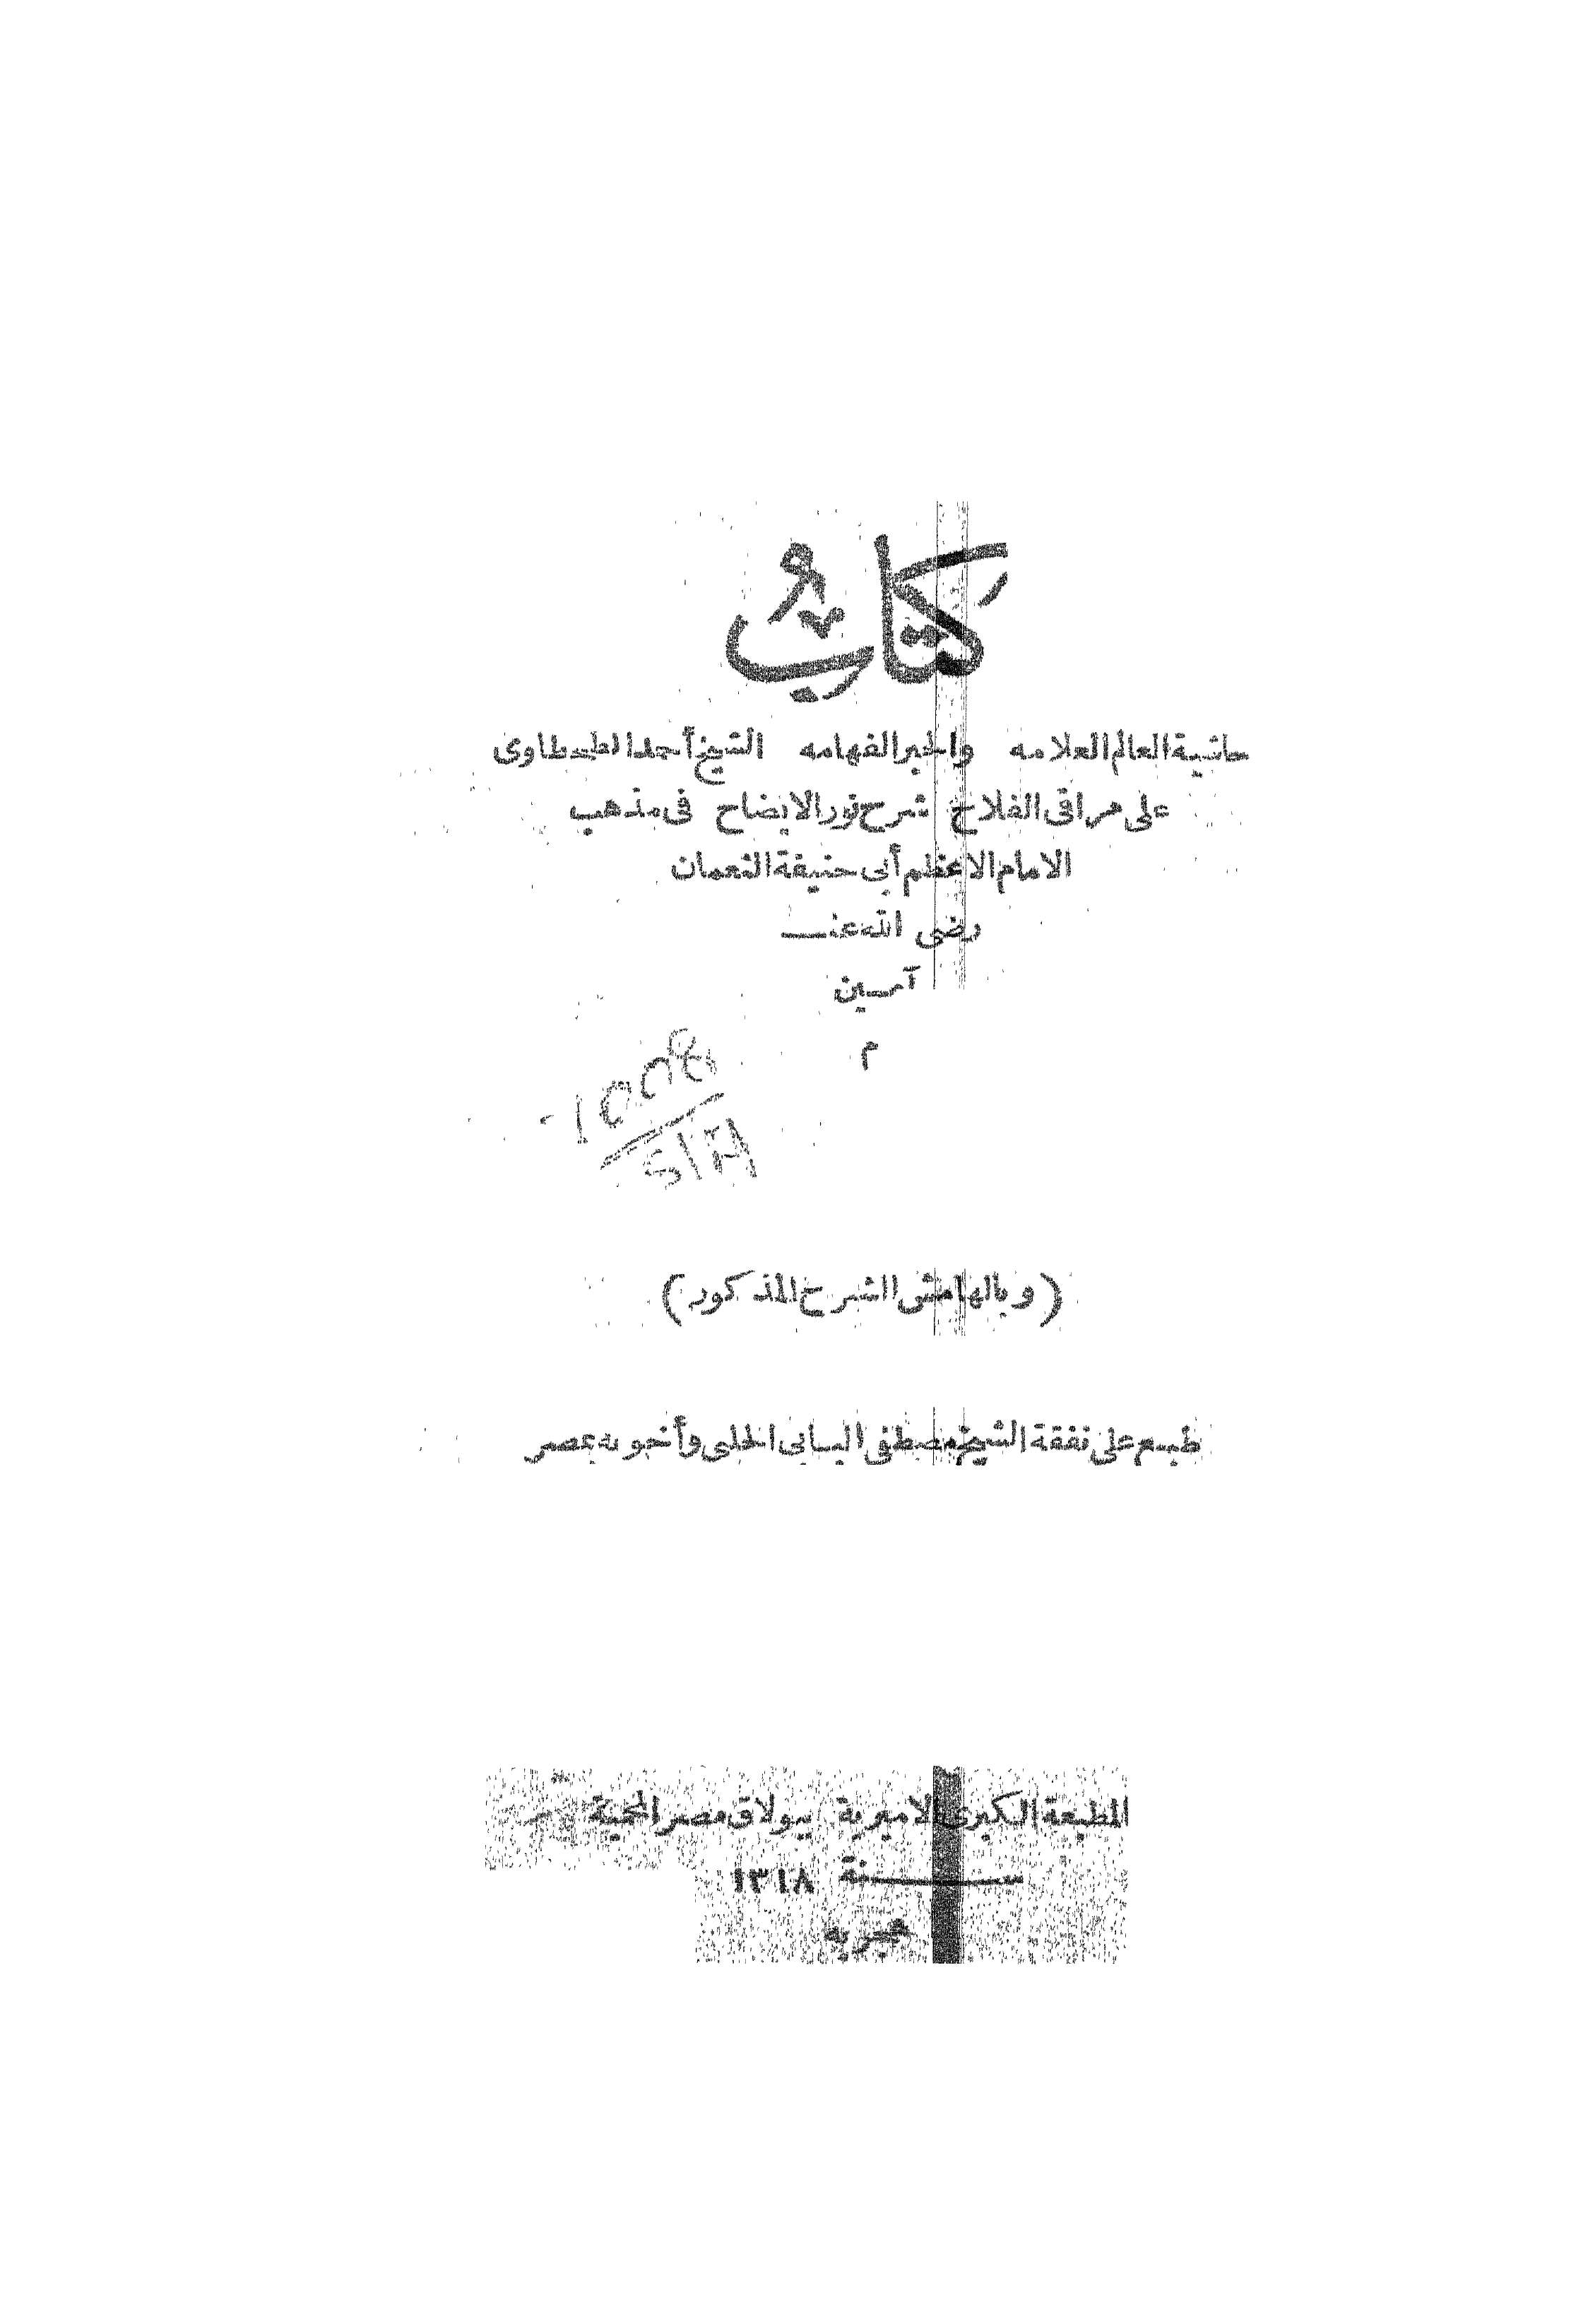 كتاب
حاشية العالم العلامه والحبر الفهامه الشيخ أحمد الطحطاوى
على مراقى الفلاح شرح نور الايضاح فى مذهب
الامام الاعظم أبى حنيفة النعمان
رضى الله عنه
آمين
م
(وبالهامش الشرح المذكور)
طبع على نفقة الشيخ مصطفى البابى الحلبى وأخويه بمصر
المطبعة الكبرى الاميرية ببولاق مصر المحمية
سنة ١٣١٨
هجريه